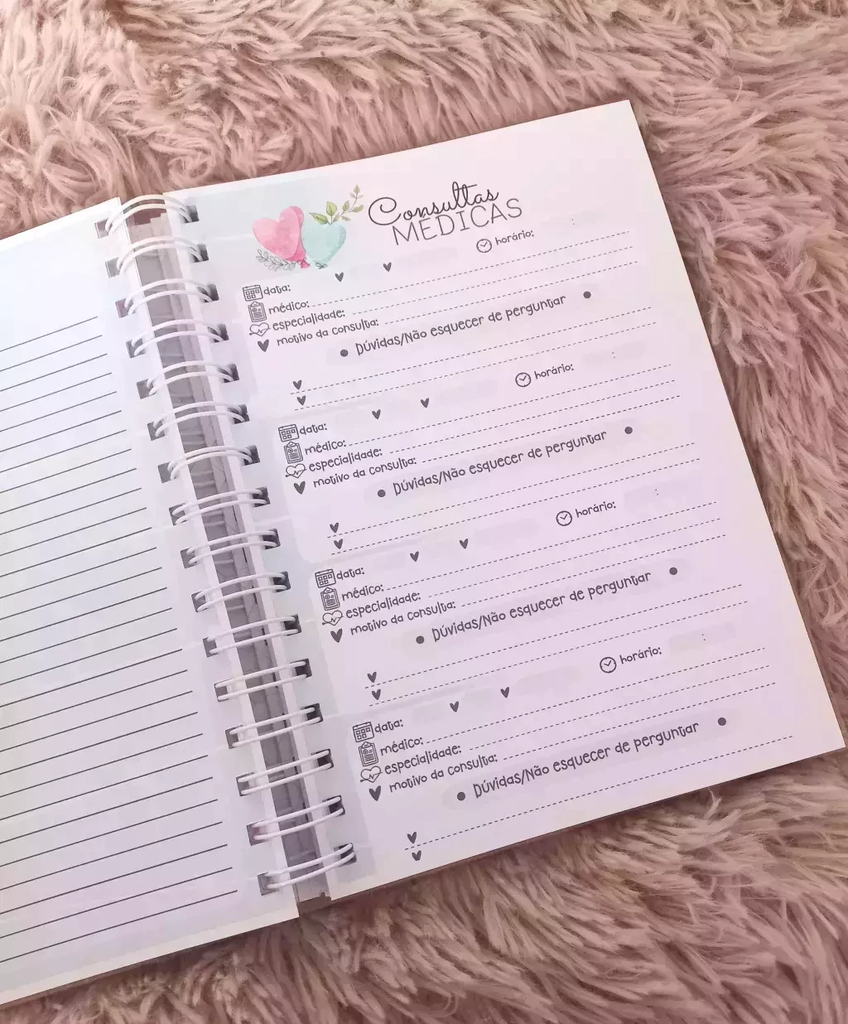 Consultas
MÉDICAS
data: horário:
médico:
especialidade:
motivo da consulta:
Dúvidas/Não esquecer de perguntar
data: horário:
médico:
especialidade:
motivo da consulta:
Dúvidas/Não esquecer de perguntar
data: horário:
médico:
especialidade:
motivo da consulta:
Dúvidas/Não esquecer de perguntar
data: horário:
médico:
especialidade:
motivo da consulta:
Dúvidas/Não esquecer de perguntar